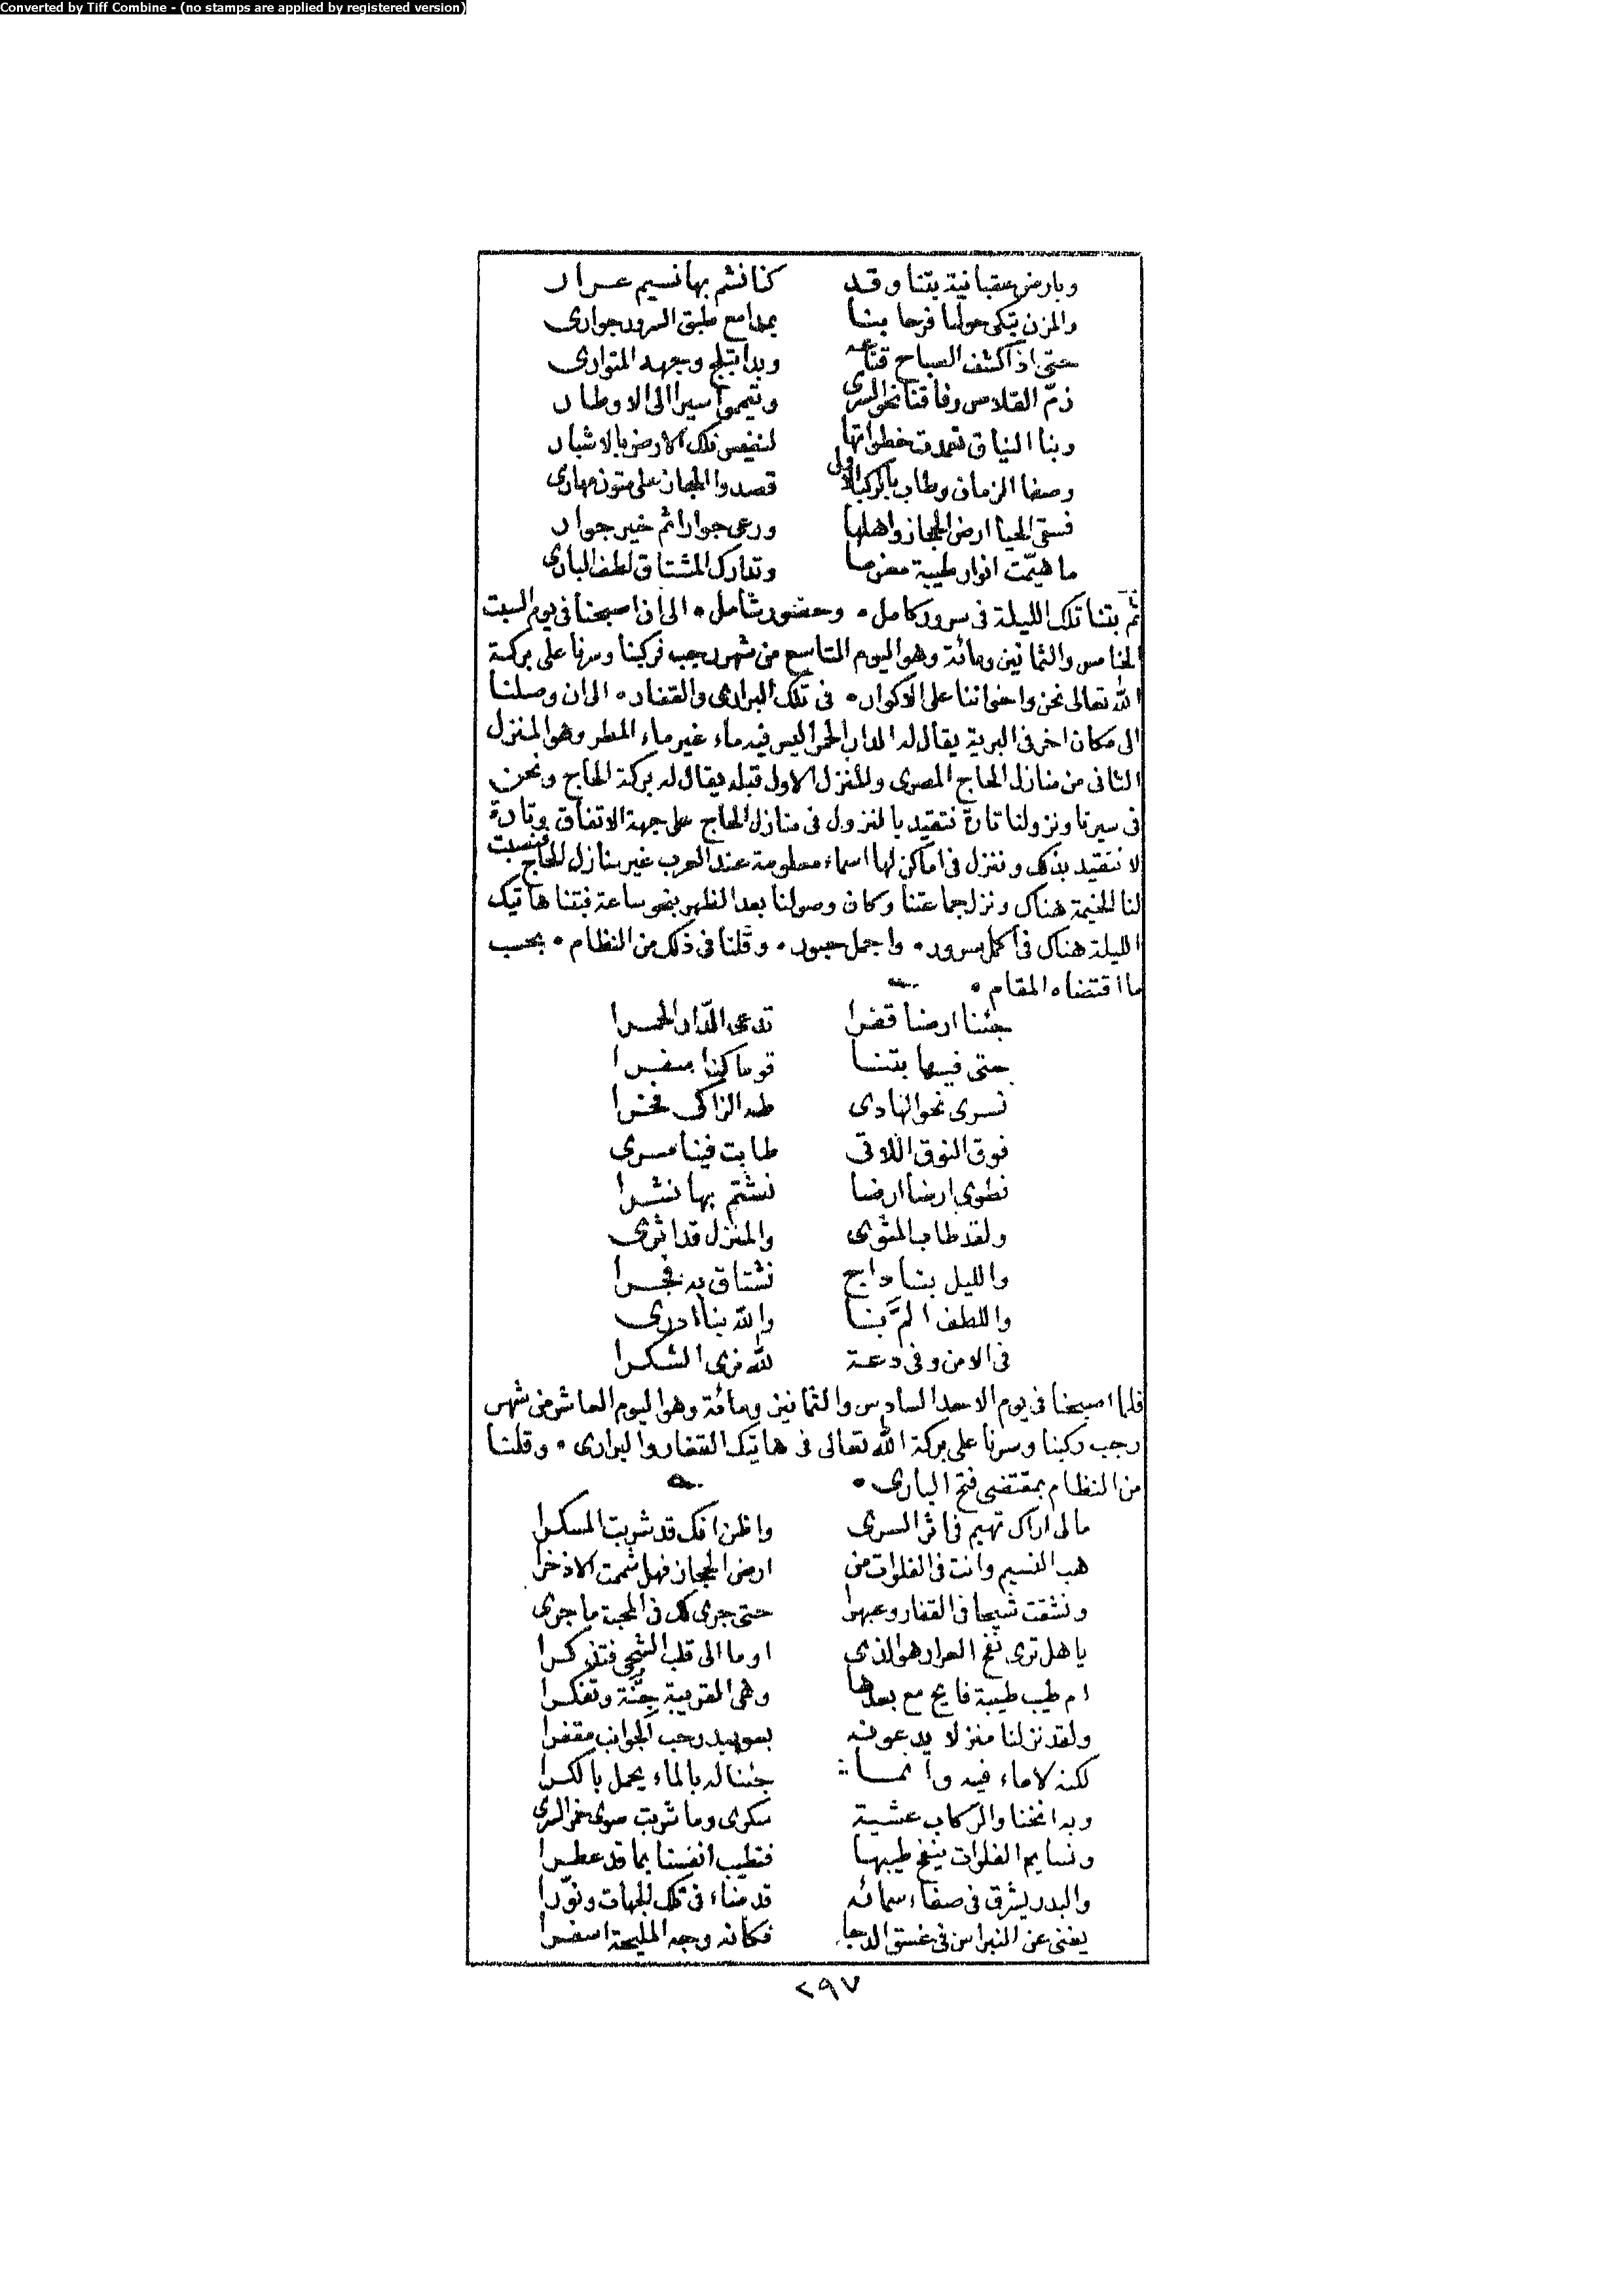 Converted by Tiff Combine - (no stamps are applied by registered version)
وبارض عقبانية بتنا وقد كنا نشم بها نسيم عرار
والمزن تبكى حولنا فرحا بنا بمدامع طبق السرور جوارى
حتى اذا كشف الصباح قناعه وبدا تبلج وجهه المتوارى
زمّ القلاص رفاقنا نحو السرى وتيمموا سيرا الى الاوطار
وبنا النياق تمددت خطواتها لنقيس تلك الارض بالاشبار
وصفا الزمان وطاب بالركب الاولى قصدوا الحجاز على متون مهارى
فسقى الحيا ارض الحجاز واهلها ورعى جوارا ثم خير جوار
ما هيّمت انوار طيبة مغرما وتدارك المشتاق لطف البارى
ثم بتنا تلك الليلة فى سرور كامل • وحضور شامل • الى ان اصبحنا فى يوم السبت
الخامس والثمانين ومائة وهو اليوم التاسع من شهر رجب فركبنا وسرنا على بركة
الله تعالى نحن واخواننا على الاكوار • فى تلك البرارى والقفار • الى ان وصلنا
الى مكان اخر فى البرية يقال له الدار الحمرا ليس فيه ماء غير ماء المطر وهو المنزل
الثانى من منازل الحاج المصرى والمنزل الاول قبله يقال له بركة الحاج ونحن
فى سيرنا ونزولنا تارة نتقيد بالنزول فى منازل الحاج على جهة الاتفاق وتارة
لا نتقيد بذلك وننزل فى اماكن لها اسماء معلومة عند العرب غير منازل الحاج فنصبت
لنا الخيمة هناك ونزل جماعتنا وكان وصولنا بعد الظهر بنحو ساعة فبتنا هاتيك
الليلة هناك فى اكمل سرور • واجمل حبور • وقلنا فى ذلك من النظام • بحسب
ما اقتضاه المقام •
جئنا ارضا قفرا تدعى الدّار الحمرا
حتى فيها بتنا قوما كنا سفرا
نسرى نحو الهادى طه الزاكى فخرا
فوق النوق اللاتى طابت فينا مسرى
نطوى ارضا ارضا نشتم بها نشرا
ولقد طاب المثوى والمنزل قد اثرى
والليل بنا داج نشتاق به فجرا
واللطف المّ بنا والله بنا ادرى
فى الامن وفى دعة لله نرى الشكرا
فلما اصبحنا فى يوم الاحد السادس والثمانين ومائة وهو اليوم العاشر من شهر
رجب ركبنا وسرنا على بركة الله تعالى فى هاتيك القفار والبرارى • وقلنا
من النظام بمقتضى فتح البارى •
مالى اراك تهيم فى اثر السرى واظن انك قد شربت المسكرا
هب النسيم وانت فى الفلوات من ارض الحجاز فهل شممت الاذخرا
ونشقت شيحا فى القفار وعبهرا حتى جرى لك فى المحبة ما جرى
يا هل ترى نفح العرار هو الذى اوما الى قلب الشجى فتذكرا
ام طيب طيبة فايح مع بعدها وهى القريبة جنّة وتفكرا
ولقد نزلنا منزلا يدعونه بعويبد رحب الجوانب مقفرا
لكنه لا ماء فيه وانما جئنا له بالماء يحمل بالكرا
وبه انخنا والركاب عشية سكرى وما شربت سوى خمر السرى
ونسايم الفلوات ينفح طيبها فتطيب انفسنا بما قد عطرا
والبدر يشرق فى صفاء سمائه قد ضاء فى تلك الجهات ونوّرا
يغنى عن النبراس فى غسق الدجا فكانه وجه المليحة اسفرا
٢٩٧